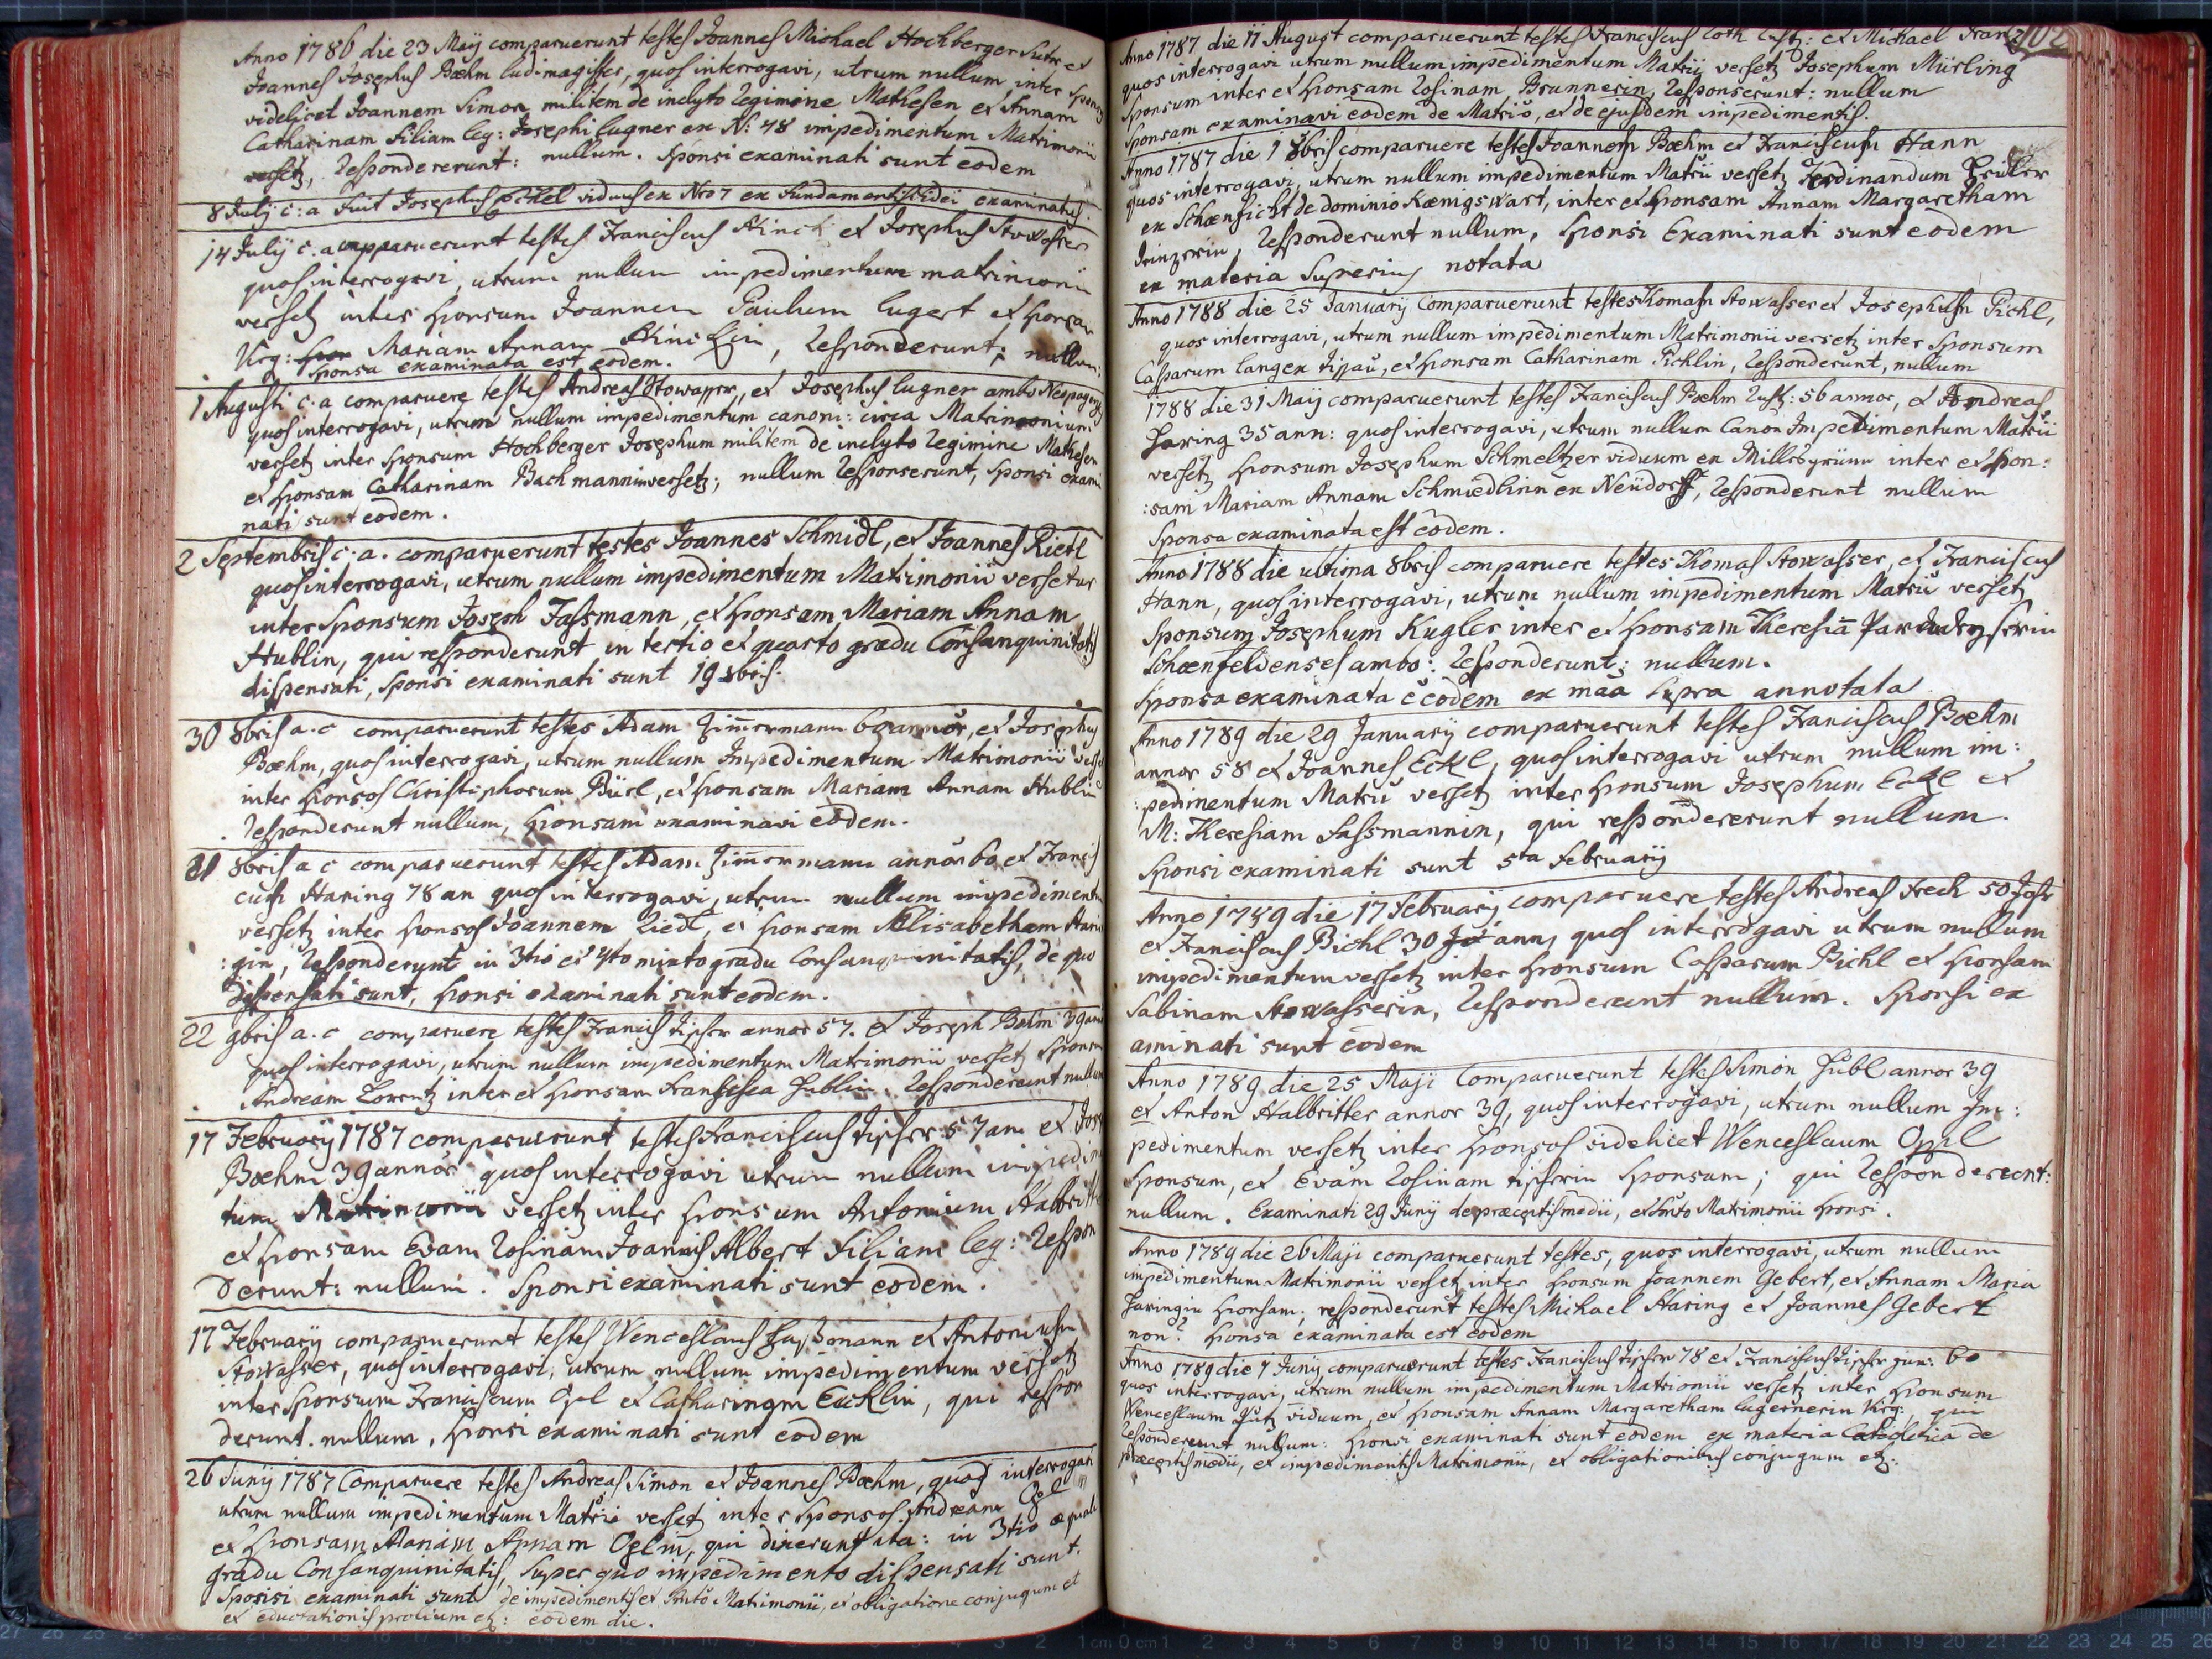 Anno 1786 die 23 Maÿ comparuerunt testes Joannes Michael Hochberger Sutor et
Joannes Josephus Bœhm ludimagister, quos interrogavi, utrum nullum inter Sponsos
videlicet Joannem Simon militem de inclyto Regimine Mathesen et Annam
Catharinam Filiam leg: Josephi Lugner ex N: 48 impedimentum Matrimonii
versetz, Respondererunt: nullum. Sponsi examinati sunt eodem
8 Julÿ c: a Fuit Josephus Eckel viduus ex Nro 7 ex Fundamentis Fidei examinatus.
14 Julÿ c. a comparuerunt testes Franciscus et Josephus Stowasser
quos interrogavi, utrum nullum impedimentum matrimonii
versetz inter Sponsum Joannem Paulum Lugert et Sponsam
Virg: Mariam Annam, Responderunt: nullum:
Sponsa examinata est eodem.
1 Augusti c: a comparuere testes Andreas Stowasser, et Josephus Lugner ambo
quos interrogavi, utrum nullum impedimentum canon: circa Matrimonium
versetz inter Sponsum Hochberger Josephum militem de inclyto Regimine Mathesen
et Sponsam Catharinam Bachmannin versetz; nullum Responserunt, Sponsi exami
nati sunt eodem.
2 Septembris c: a. comparuerunt testes Joannes Schmidl, et Joannes Riedl
quos interrogavi, utrum nullum impedimentum Matrimonii versetur
inter Sponsum Joseph Fassmann, et Sponsam Mariam Annam
Hublin, qui responderunt in tertio et quarto gradu Consanquinitatis
dispensati, Sponsi examinati sunt 19 8bris.
30 8bris a. c comparuerunt testes Adam Zim̄ermann 60 annor, et Josephus
Bœhm, quos interrogavi, utrum nullum Impedimentum Matrimonii
inter Sponsos Christophorum Bürl, et Sponsam Mariam Annam Hublin
Responderunt nullum, Sponsam examinavi eodem.
31 8bris a c comparuerunt testes Adam Zim̄ermann annor 60 et Francis
cus Haring 78 an quos interrogavi, utrum nullum impedimentum
versetz inter Sponsos Joannem Riedl, et Sponsam Elisabetham Harin
:gin, Responderunt in 3tio et 4to mixto gradu Consanquinitatis, de quo
Dispensati sunt, Sponsi examinati sunt eodem.
22 9bris a. c comparuere testes Francis Tipser annor 57. et Joseph Bœhm 39 ann
quos interrogavi, utrum nullum impedimentum Matrimonii versetz Sponsum
Andream Lorentz inter et Sponsam Francisca Hublin. Responderunt nullum
17 Februarÿ 1787 comparuerunt testes Franciscus Tipser 57 ann et Jose
Bœhm 39 annor quos interrogavi utrum nullum impedimen
tum Matrimonii versetz inter Sponsum Antonium Halbritte
et Sponsam Evam Rosinam Joannis Albert Filiam leg: Respon
derunt: nullum. Sponsi examinati sunt eodem.
17 Februarÿ comparuerunt testes Wenceslaus Faßmann et Antonius
Stowasser, quos interrogavi, utrum nullum impedimentum versetz
inter Sponsum Franciscum Opl et Catharinam Eucklin, qui respon
derunt. nullum, Sponsi examinati sunt eodem
26 Junÿ 1787 Comparuere testes Andreas Simon et Joannes Bœhm, quos interrogavi
utrum nullum impedimentum Matrii versetz inter Sponsos Andream Opl
et Sponsam Mariam Annam Oplin, qui dixerunt ita: in 3tio æquali
gradu Consanquinitatis, Super quo impedimento dispensati sunt.
Sposisi examinati sunt de impedimentis et Smto Matrimonii, et obligatione conjugum et
et eductationis prolium etz: eodem die.
102
Anno 1787 die 11 August comparuerunt testes Franciscus Loth Rust: et Michael Franz
quos interrogavi utrum nullum impedimentum Matrii versetz Josephum Mürling
Sponsum inter et Sponsam Rosinam Brunnerin, Responserunt: nullum
Sponsam examinavi eodem de Matrio, et de ejusdem impedimentis.
Anno 1787 die 1 8bris comparuere testes Joannes Bœhm et Franciscus Hann
quos interrogavi, utrum nullum impedimentum Matrii versetz Ferdinandum
ex Schœnficht de dominio Kœnigswart, inter et Sponsam Annam Margaretham
Responderunt nullum, Sponsi Examinati sunt eodem
ex materia Superius notata
Anno 1788 die 25 Januarÿ Comparuerunt testes Thomas Stowasser et Josephus Pichl,
quos interrogavi, utrum nullum impedimentum Matrimonii versetz inter Sponsum
Casparum Lang ex Tissau, et Sponsam Catharinam Pichlin, Responderunt, nullum
1788 die 31 Maÿ comparuerunt testes Franciscus Bœhm Rust: 56 annor, et Andreas
Haring 35 ann: quos interrogavi, utrum nullum Canon Impedimentum Matrii
versetz Sponsum Josephum Schmeltzer viduum ex Millesgrünn inter et Spon:
:sam Mariam Annam Schmiedlinn ex Neüdorff, Responderunt nullum
Sponsa examinata est eodem.
Anno 1788 die ultima 8bris comparuere testes Thomas Stowasser, et Franciscus
Hann, quos interrogavi, utrum nullum impedimentum Matrii versetz
Sponsum Josephum Kugler inter et Sponsam Theresiā
Schœnfeldenses ambo: Responderunt; nullum.
Sponsa examinata ē eodem ex maā Supra annotata
Anno 1789 die 29 Januarÿ comparuerunt testes Franciscus Bœhm
annor 58 et Joannes Eckl, quos interrogavi utrum nullum im:
:pedimentum Matrii versetz inter Sponsum Josephum Eckl et
M: Theresiam Fassmannin, qui respondererunt nullum.
Sponsi examinati sunt 5ta Februarÿ
Anno 1789 die 17 Februarÿ comparuere testes Andreas Frech 50
et Franciscus Pichl 30 ann, quos interrogavi utrum nullum
impedimentum versetz inter Sponsum Casparum Pichl et Sponsam
Sabinam Stowasserin, Responderunt nullum. Sponsi ex
aminati sunt eodem
Anno 1789 die 25 Maji Comparuerunt testes Simon Hübl annor 39
et Anton Halbritter annor 39, quos interrogavi, utrum nullum Im:
pedimentum versetz inter Sponsos videlicet Wenceslaum Opl
Sponsum, et Evam Rosinam Tipserin Sponsam; qui Responderunt:
nullum. Examinati 29 Junÿ de præceptis medii, et Smto Matrimonii Sponsi.
Anno 1789 die 26 Maji comparuerunt testes, quos interrogavi, utrum nullum
impedimentum Matrimonii versetz inter Sponsum Joannem Gebert, et Annam Maria
Haringin Sponsam; responderunt testes Michael Haring et Joannes Gebert
non? Sponsa examinata est eodem
Anno 1789 die 7 Junÿ comparuerunt testes Franciscus Tipser 78 et Franciscus Tipser jun: 60
quos interrogavi, utrum nullum impedimentum Matriomii versetz inter Sponsum
Wenceslaum viduum, et Sponsam Annam Margaretham Lugernerin Virg: qui
Responderunt nullum: Sponsi examinati sunt eodem ex materia Catechetica de
præceptis medii, et impedimentis Matrimonii, et obligationibus conjugum etz: